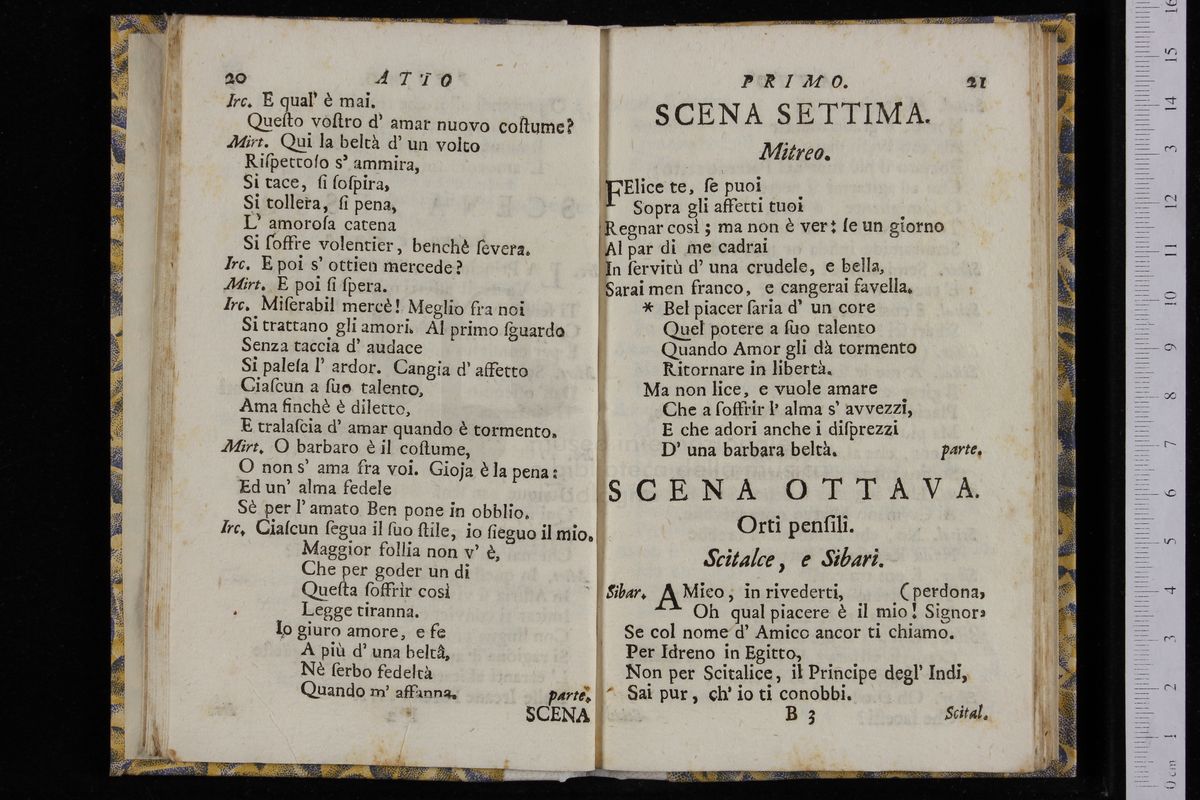 20 ATTO
Irc. E qual' è mai.
Queſto voſtro d' amar nuovo coſtume?
Mirt. Qui la beltà d' un volto
Riſpettoſo s' ammira,
Si tace, ſi ſoſpira,
Si tollera, ſi pena,
L' amoroſa catena
Si ſoffre volentier, benchè ſevera.
Irc. E poi s' ottien mercede?
Mirt. E poi ſi ſpera.
Irc. Miſerabil mercè! Meglio fra noi
Si trattano gli amori. Al primo ſguardo
Senza taccia d' audace
Si paleſa l' ardor. Cangia d' affetto
Ciaſcun a ſuo talento,
Ama finchè è diletto,
E tralaſcia d' amar quando è tormento.
Mirt. O barbaro è il coſtume,
O non s' ama fra voi. Gioja è la pena:
Ed un' alma fedele
Sè per l' amato Ben pone in obblio.
Irc. Ciaſcun ſegua il ſuo ſtile, io ſieguo il mio.
Maggior follia non v' è,
Che per goder un dì
Queſta ſoffrir così
Legge tiranna.
Io giuro amore, e fe
A più d' una beltâ,
Nè ſerbo fedeltà
Quando m' affanna. parte.
SCENA
PRIMO. 21
SCENA SETTIMA.
Mitreo.
FElice te, ſe puoi
Sopra gli affetti tuoi
Regnar così; ma non è ver: ſe un giorno
Al par di me cadrai
In ſervitù d' una crudele, e bella,
Sarai men franco, e cangerai favella.
* Bel piacer ſaria d' un core
Quel potere a ſuo talento
Quando Amor gli dà tormento
Ritornare in libertà.
Ma non lice, e vuole amare
Che a ſoffrir l' alma s' avvezzi,
E che adori anche i diſprezzi
D' una barbara beltà. parte.
SCENA OTTAVA.
Orti penſili.
Scitalce, e Sibari.
Sibar. AMico, in rivederti, (perdona,
Oh qual piacere è il mio! Signor,
Se col nome d' Amico ancor ti chiamo.
Per Idreno in Egitto,
Non per Scitalice, il Principe degl' Indi,
Sai pur, ch' io ti conobbi.
B 3 Scital.
0 cm 1 2 3 4 5 6 7 8 9 10 11 12 13 14 15 16